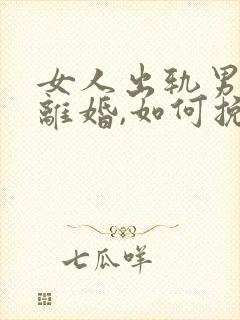 女人出轨男
離婚,如何挽
七瓜咩